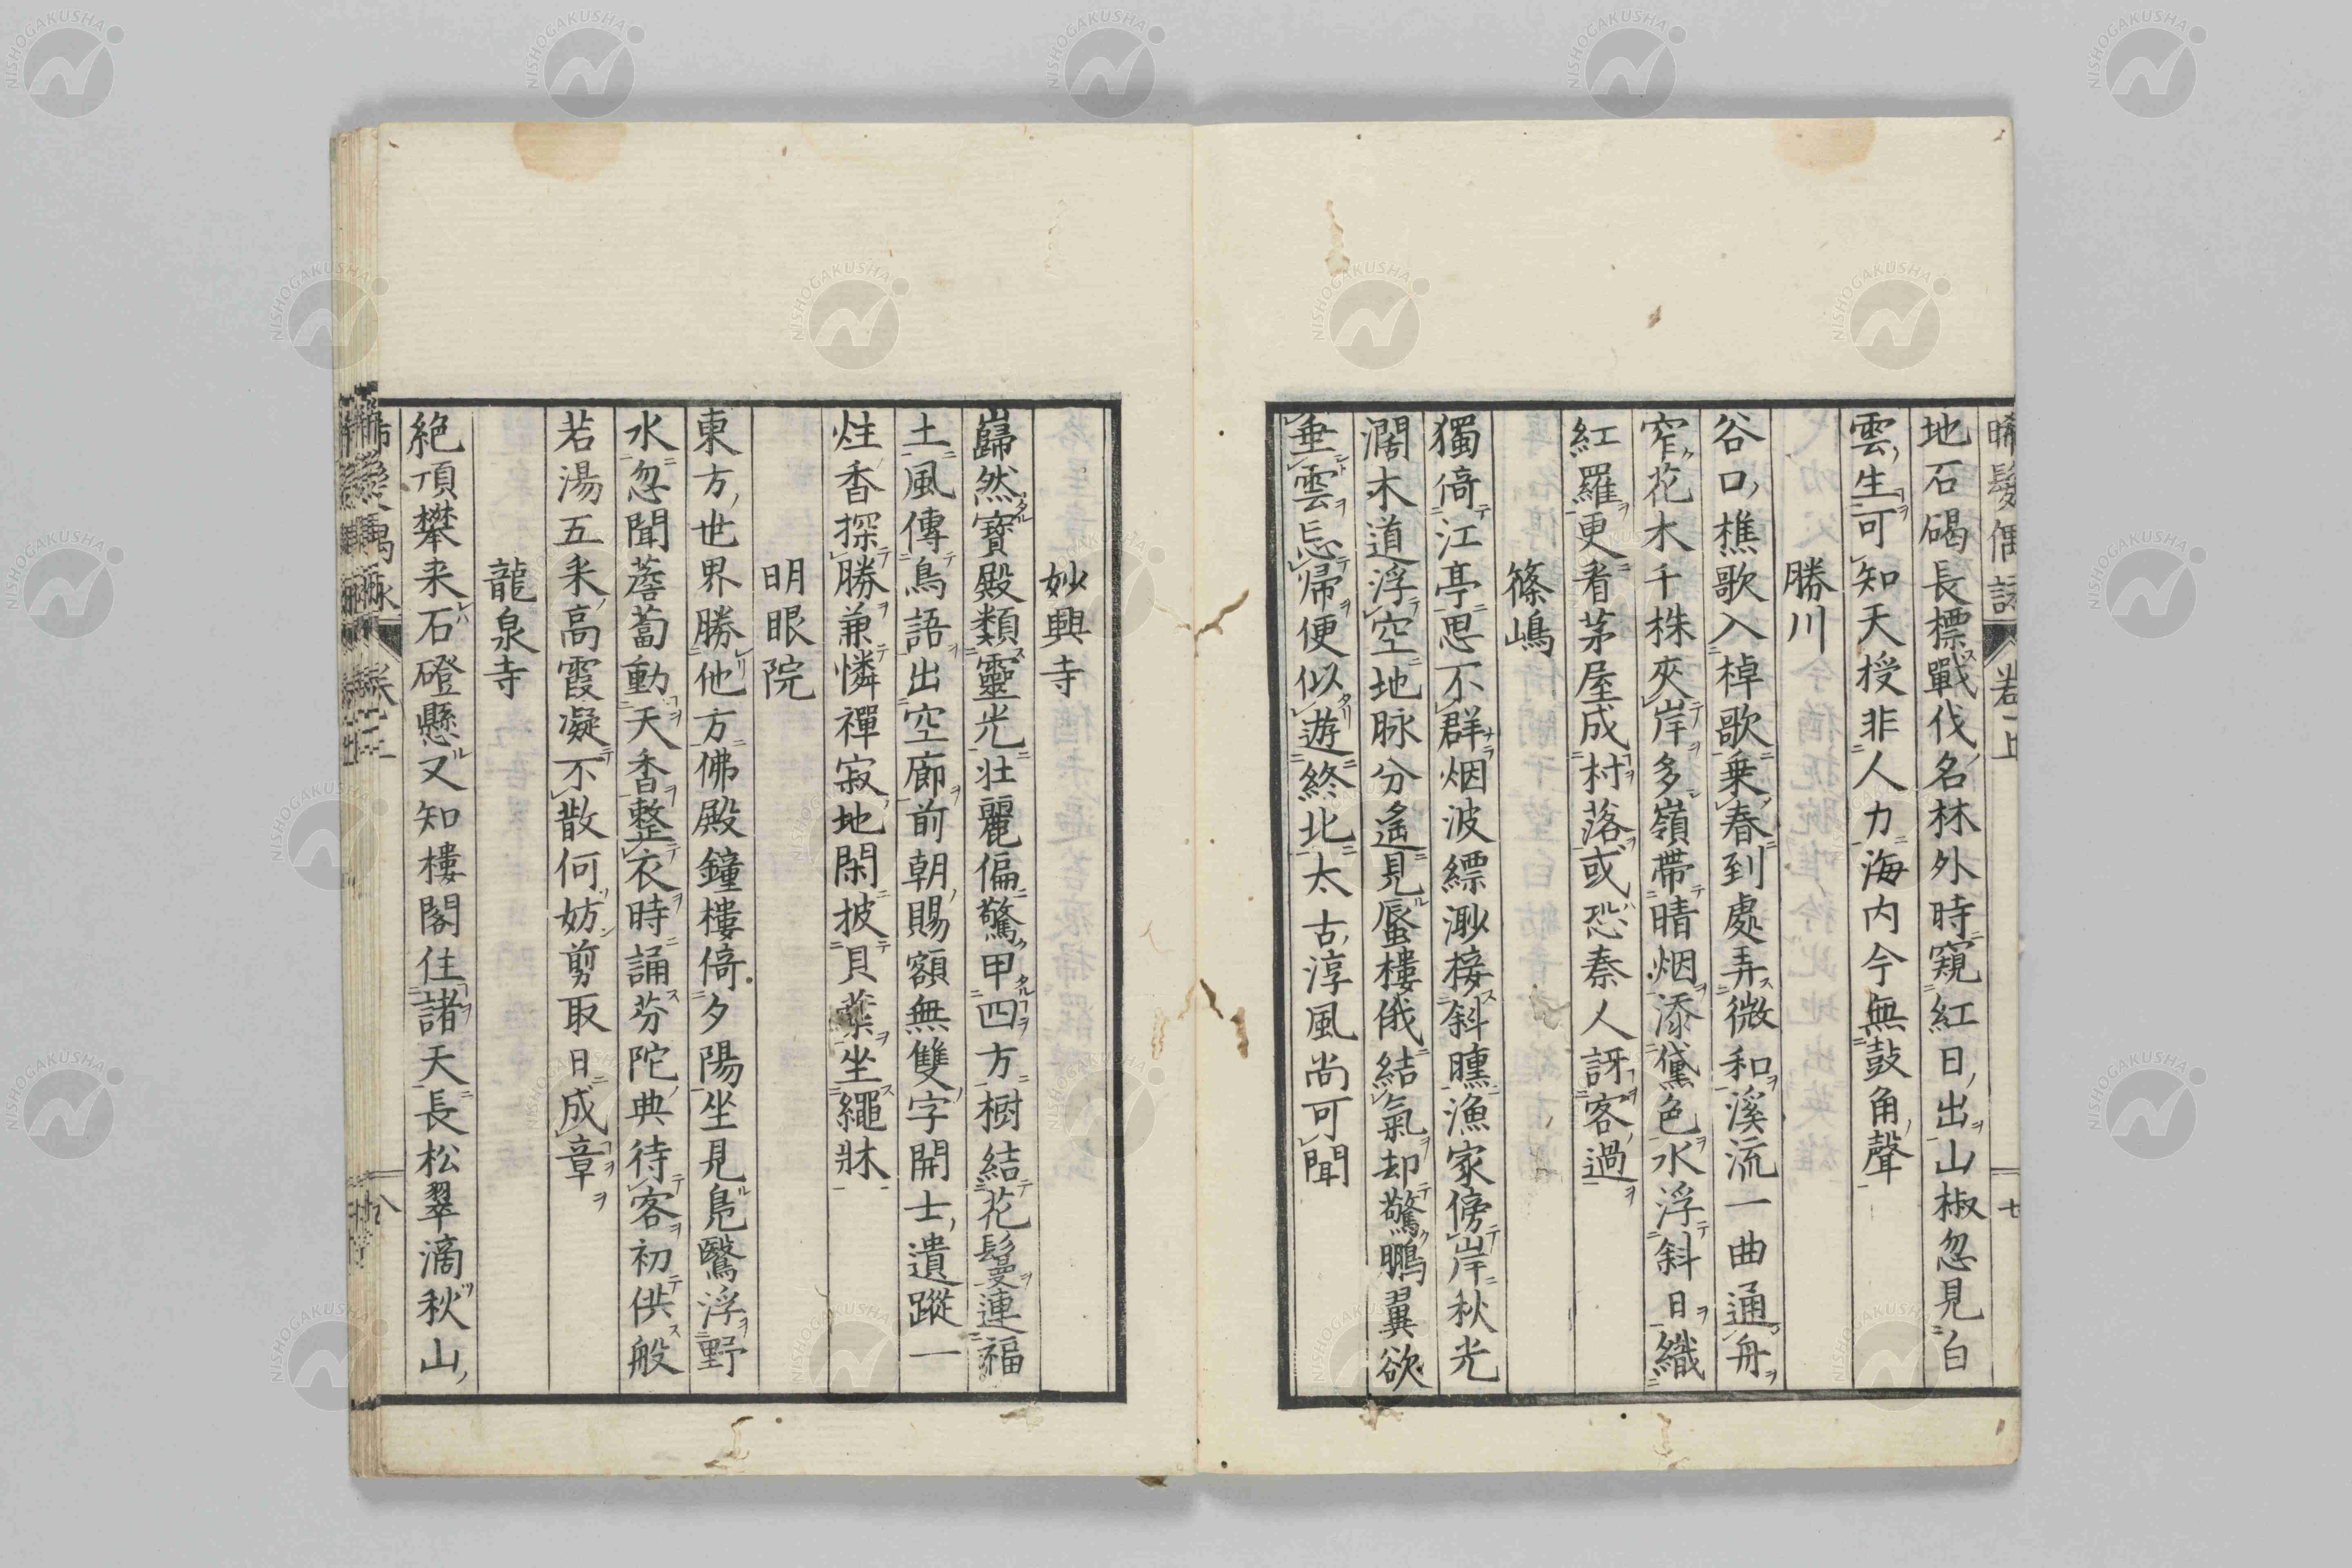 晞髮偶詠 卷上 十七
地石碣長標戰伐名林外時窺紅日出山椒忽見白
雲生可知天授非人力海内今無鼓角聲
勝川
谷口樵歌入棹歌乗春到處弄微和溪流一曲通舟
窄花木千株夾岸多嶺帶晴烟添黛色水浮斜日織
紅羅更看茅屋成村落或恐秦人訝客過
篠嶋
獨倚江亭思不群烟波縹渺接斜曛漁家傍岸秋光
濶木道浮空地脉分遙見蜃樓俄結氣却驚鵬翼欲
垂雲忘帰便似遊終北太古淳風尚可聞
妙興寺
巋然寶殿類靈光壮麗偏驚甲四方樹結花鬘連福
土風傳鳥語出空廊前朝賜額無雙字開士遺蹤一
炷香探勝兼憐禪寂地閑披貝葉坐繩牀
明眼院
東方世界勝他方佛殿鐘樓倚夕陽坐見鳬鷖浮野
水忽聞薝蔔動天香整衣時誦芬陀典待客初供般
若湯五釆高霞凝不散何妨剪取日成章
龍泉寺
絶頂攀来石磴懸又知樓閣住諸天長松翠滴秋山
NISHOGAKUSHA